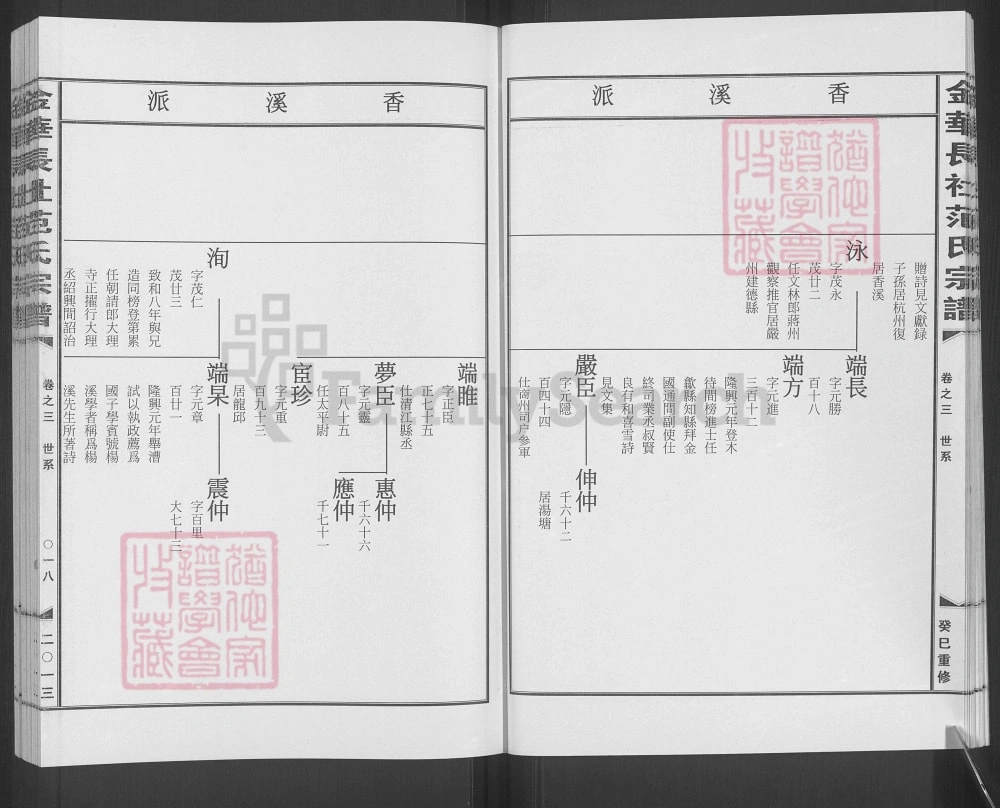 金華長社范氏宗譜
卷之三 世系
癸巳重修
香溪派
贈詩見文獻録
子孫居杭州復
居香溪
泳
字茂永
茂廿二
任文林郎蔣州
觀察推官居嚴
州建德縣
端長
字元勝
百十八
端方
字元進
三百十二
隆興元年登木
待問榜進士任
歙縣知縣拜金
國通問副使仕
終司業丞叔賢
良有和喜雪詩
見文集
嚴臣
字元隱
百四十四
仕高州司户参軍
伸仲
千六十二
居湯塘
香溪派
端睢
字正臣
正七十五
仕清江縣丞
夢臣
字元靈
百八十五
任太平尉
惠仲
千六十六
應仲
千七十一
宧珍
字元重
百九十三
居龍邱
洵
字茂仁
茂廿三
致和八年與兄
造同榜登第累
任朝請郎大理
寺正擢行大理
丞紹興間詔治
端杲
字元章
百廿一
隆興元年舉漕
試以執政薦爲
國子學賓號楊
溪學者稱爲楊
溪先生所著詩
震仲
字百里
大七十三
金華長社范氏宗譜
卷之三 世系
〇一八
二〇一三
FamilySearch